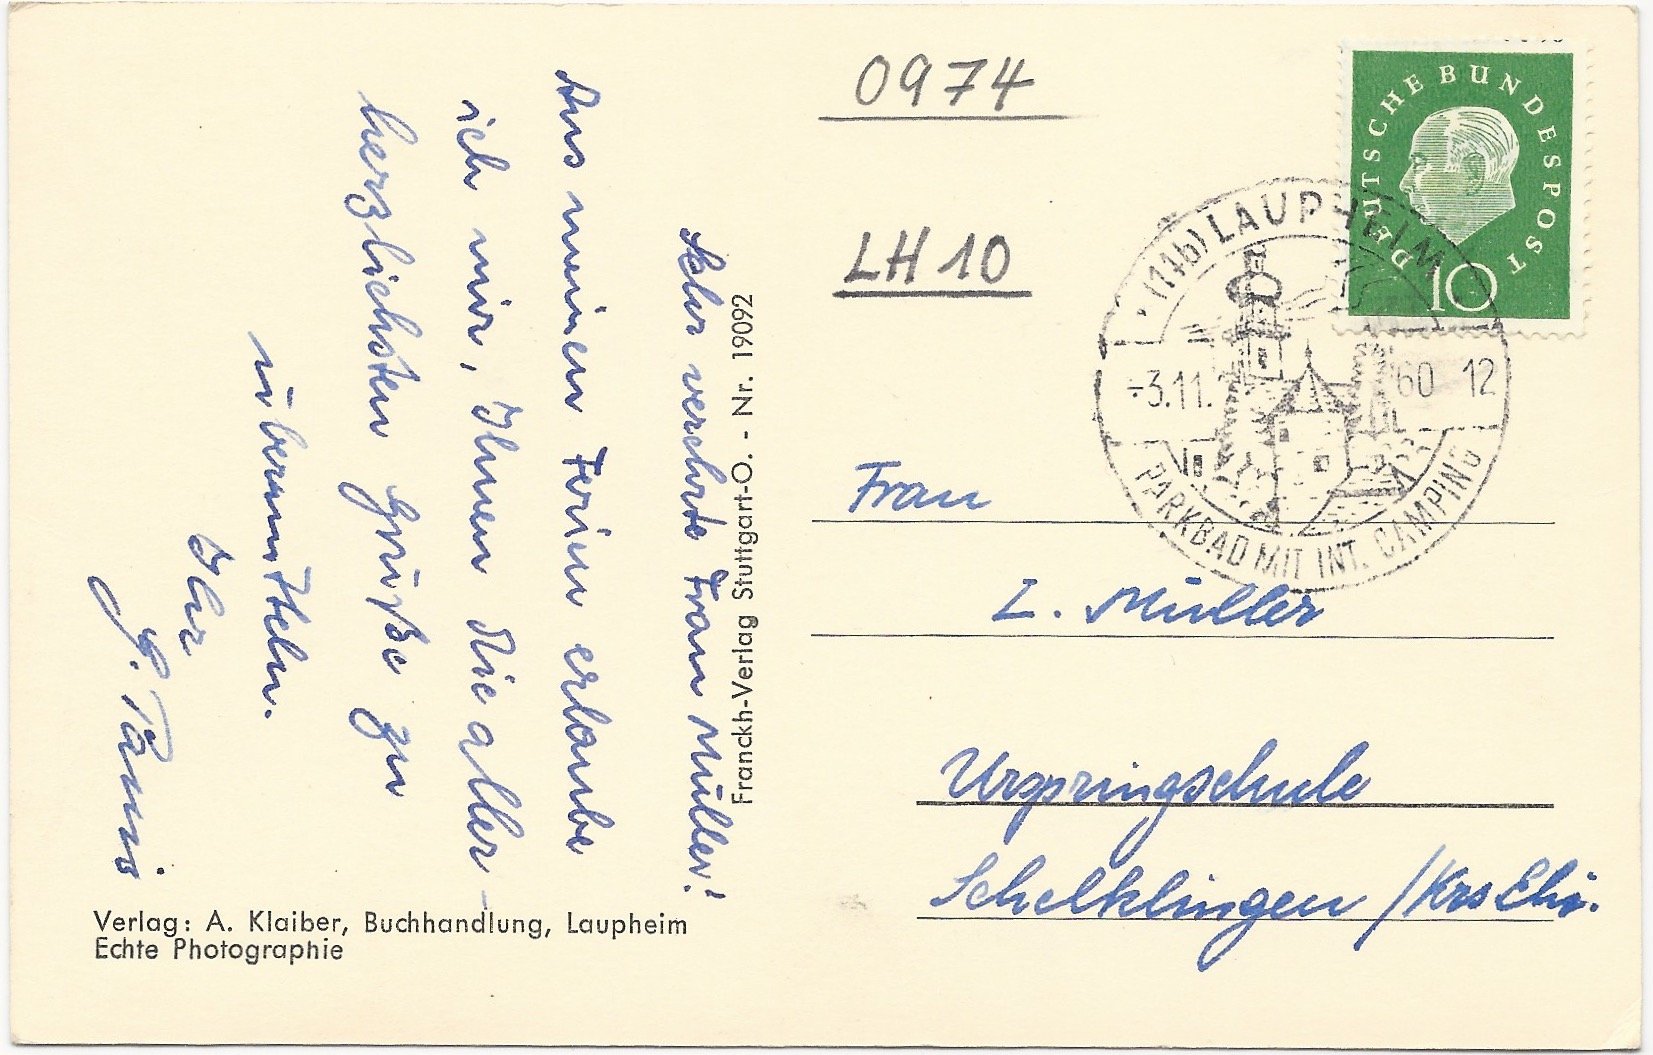 Sehr verehrte Frau Müller!
Aus meinen Ferien erlaube
ich mir, Ihnen die aller-
herzlichsten Grüße zu
übermitteln.
Ihr
Franckh-Verlag Stuttgart-O. - Nr. 19092
Verlag: A. Klaiber, Buchhandlung, Laupheim
Echte Photographie
0974
LH 10
DEUTSCHE BUNDESPOST
10
(14b) LAUPHEIM
-3.11.60 12
PARKBAD MIT INT. CAMPING
Frau
L. Müller
Urspringschule
Schelklingen / Krs Ehi.